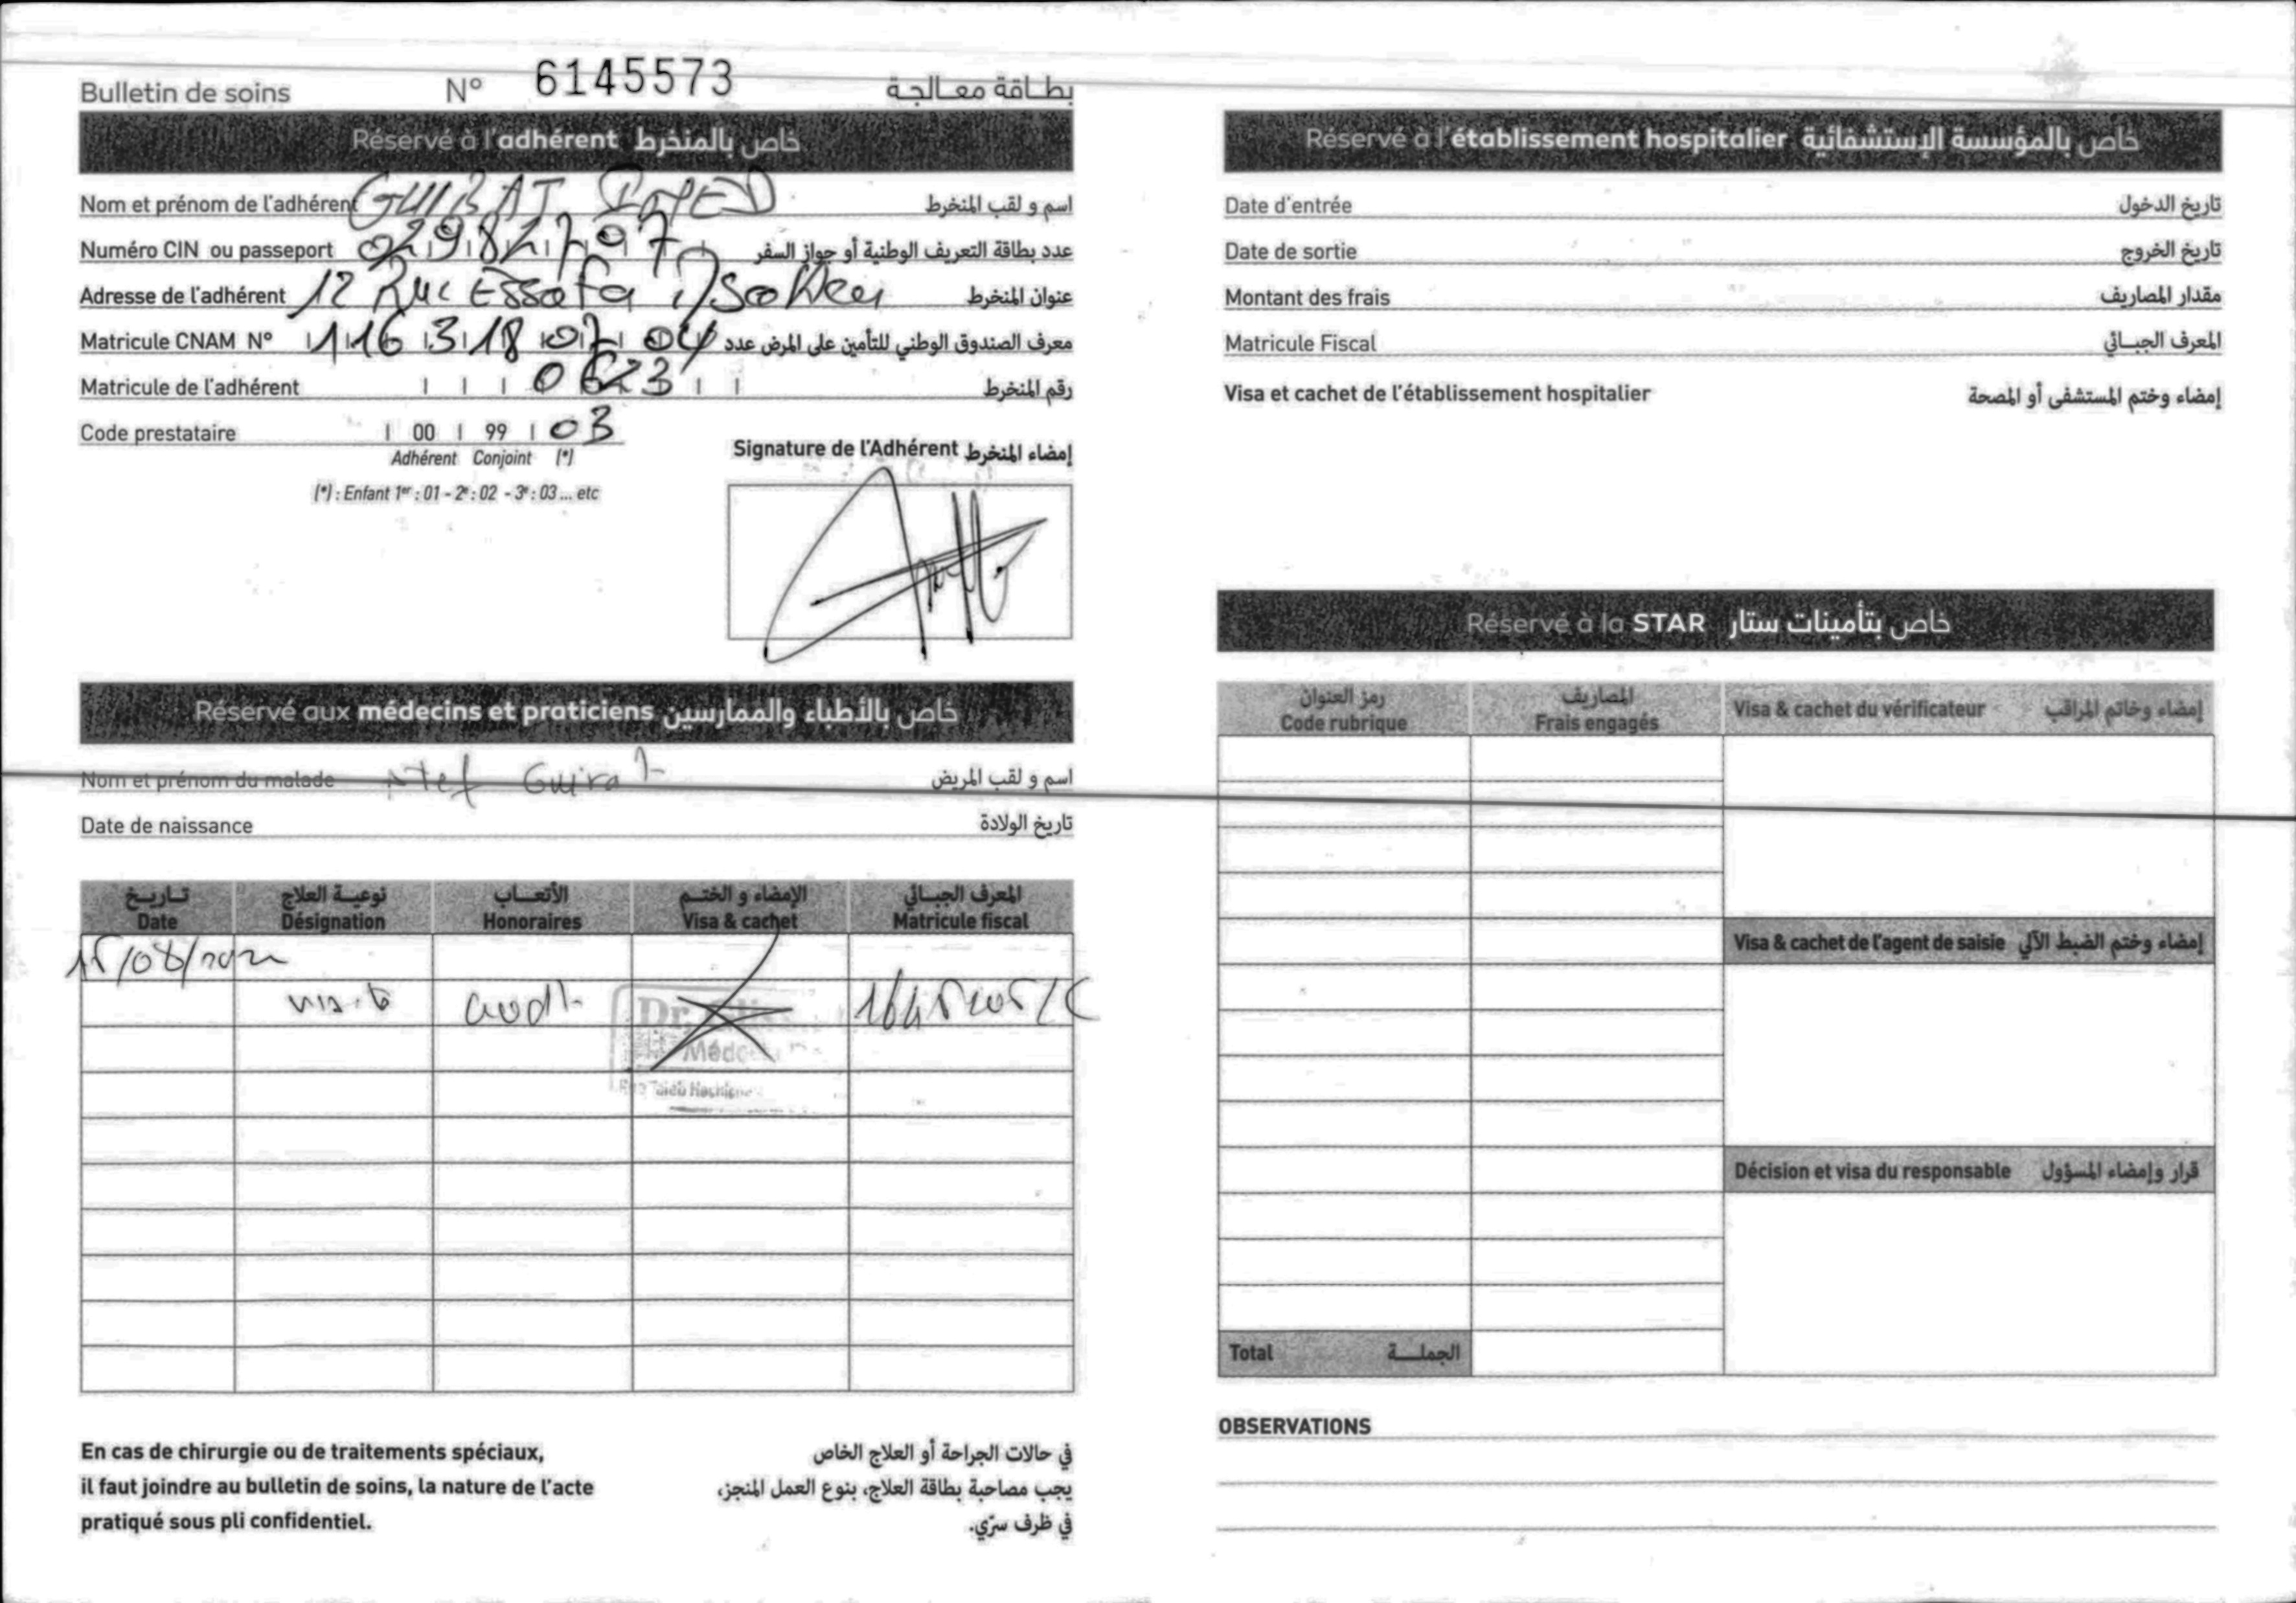 Bulletin de soins N° 6145573 بطاقة معالجة
Réservé à l'adhérent خاص بالمنخرط
Nom et prénom de l'adhérent GUIRAT IMED اسم و لقب المنخرط
Numéro CIN ou passeport 02982797 عدد بطاقة التعريف الوطنية أو جواز السفر
Adresse de l'adhérent 12 Rue Essafa عنوان المنخرط
Matricule CNAM N° معرف الصندوق الوطني للتأمين على المرض عدد
Matricule de l'adhérent 0623 رقم المنخرط
Code prestataire 00 99 03
Adhérent Conjoint (*)
(*) : Enfant 1er : 01 - 2e : 02 - 3e : 03 ... etc
Signature de l'Adhérent إمضاء المنخرط
Réservé aux médecins et praticiens خاص بالأطباء والممارسين
Nom et prénom du malade Atef Guirat اسم و لقب المريض
Date de naissance تاريخ الولادة
تاريخ نوعية العلاج الأتعاب الإمضاء و الختم المعرف الجبائي
Date Désignation Honoraires Visa & cachet Matricule fiscal
visite
Dr
Médec
En cas de chirurgie ou de traitements spéciaux,
il faut joindre au bulletin de soins, la nature de l'acte
pratiqué sous pli confidentiel.
في حالات الجراحة أو العلاج الخاص
يجب مصاحبة بطاقة العلاج، بنوع العمل المنجز،
في ظرف سرّي.
Réservé à l'établissement hospitalier خاص بالمؤسسة الإستشفائية
Date d'entrée تاريخ الدخول
Date de sortie تاريخ الخروج
Montant des frais مقدار المصاريف
Matricule Fiscal المعرف الجبائي
Visa et cachet de l'établissement hospitalier إمضاء وختم المستشفى أو المصحة
Réservé à la STAR خاص بتأمينات ستار
رمز العنوان المصاريف
Code rubrique Frais engagés Visa & cachet du vérificateur إمضاء وخاتم المراقب
Visa & cachet de l'agent de saisie إمضاء وختم الضبط الآلي
Décision et visa du responsable قرار وإمضاء المسؤول
Total الجملة
OBSERVATIONS